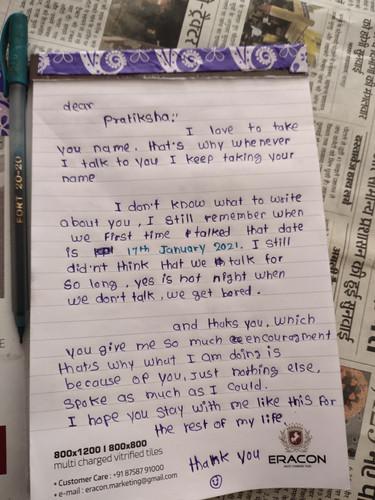 FORT 20-20
dear
Pratiksha,,
I love to take
you name. that's why whenever
I talk to you I keep taking your
name
I don't know what to write
about you, I still remember when
we first time talked that date
is 17th January 2021. I still
did'nt think that we talk for
so long. yes is not night when
we don't talk, we get bored.
and thaks you, which
you give me so much encouragment
that's why what I am doing is
because of you, just nothing else,
spoke as much as I could.
I hope you stay with me like this for
the rest of my life.
thank you
800x1200 | 800x800
multi charged vitrified tiles
• Customer Care : +91 87587 91000
• e-mail : eracon.marketing@gmail.com
ERACON